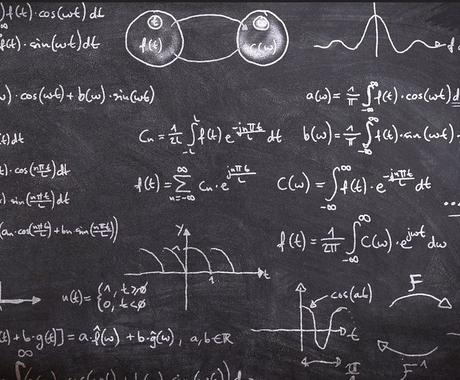 ) f(t)·cos(ωt) dt
f(t)·sin(ωt) dt
t
f(t)
ω
C(ω)
ω)·cos(ωt) + b(ω)·sin(ωt)
a(ω) = 1/π ∫_{-∞}^{∞} f(t)·cos(ωt) d
(t) dt
C_n = 1/2L ∫_{-L}^{L} f(t) e^{-jnπt/L} dt
b(ω) = 1/π ∫_{-∞}^{∞} f(t)·sin(ωt)·
t)·cos(nπt/L) dt
f(t) = ∑_{n=-∞}^{∞} C_n·e^{jnπt/L}
C(ω) = ∫_{-∞}^{∞} f(t)·e^{-jnπt/L} dt
) sin(nπt/L) dt
...
(a_n·cos(nπt/L) + b_n sin(nπt/L))
f(t) = 1/2π ∫_{-∞}^{∞} C(ω)·e^{jωt} dω
y
1
t
u(t) = { 1, t≥0
0, t<0
cos(at)
F
t
(t) + b·g(t)] = a·f̂(ω) + b·ĝ(ω), a,b∈ℝ
F⁻¹
π
∞